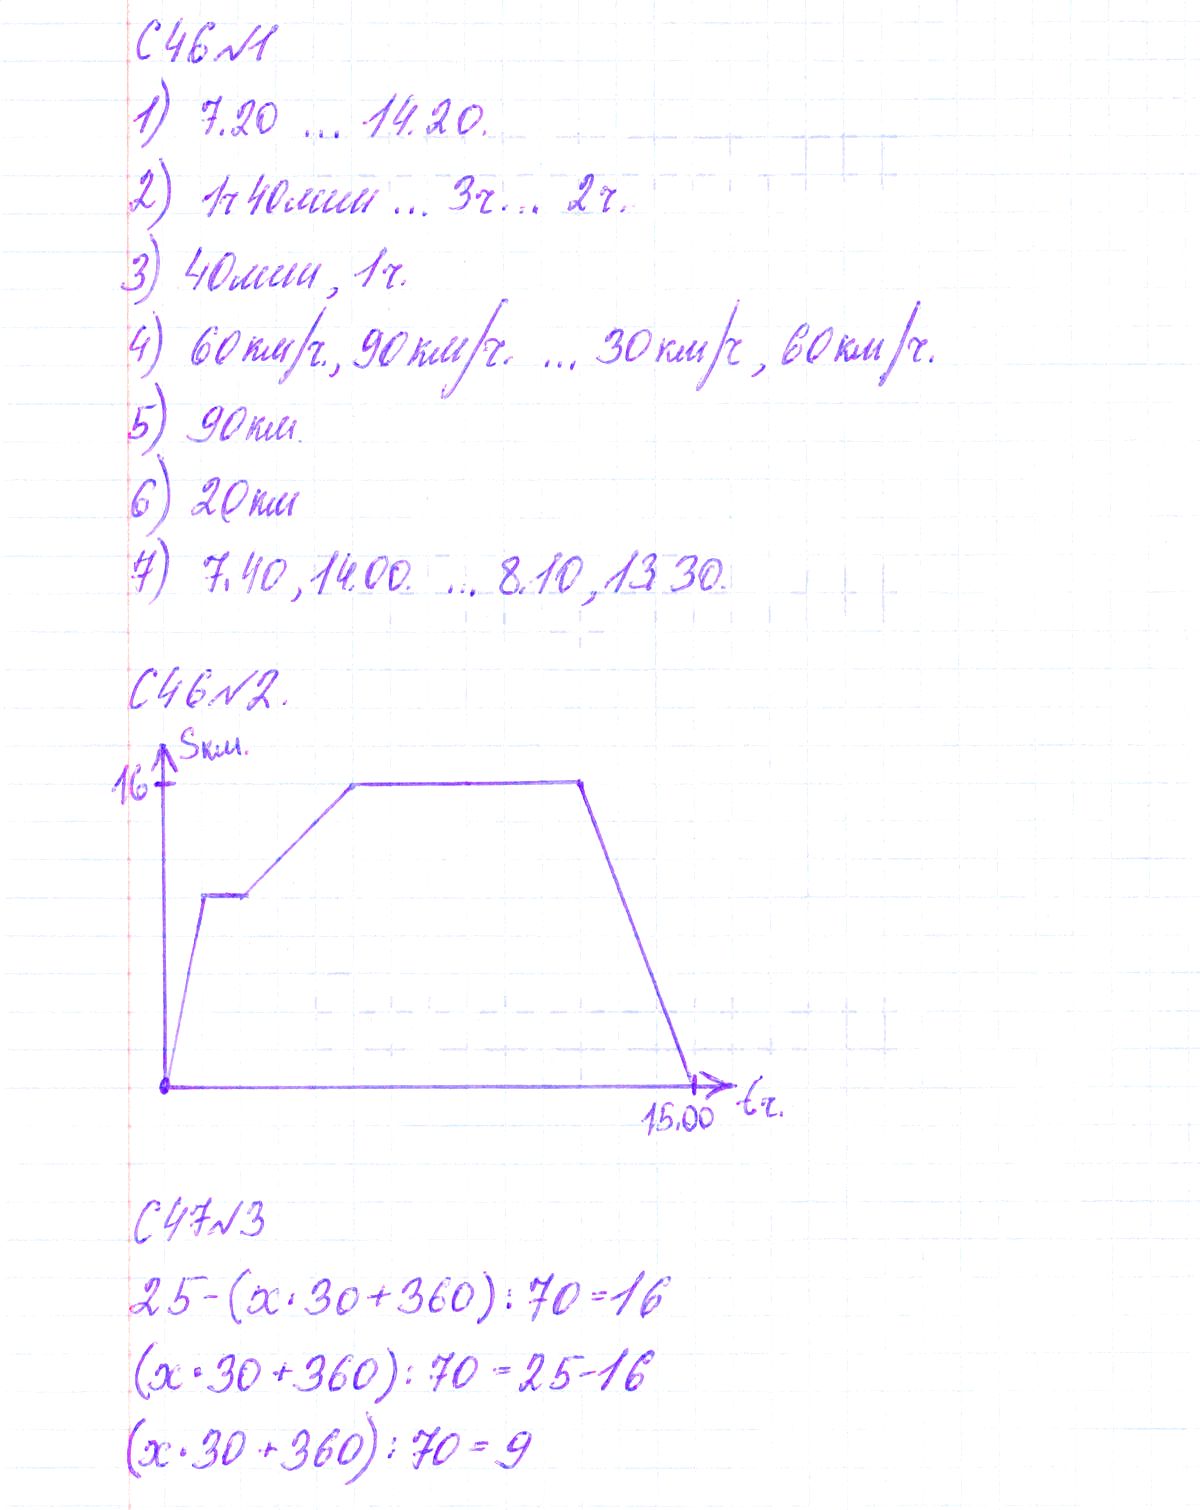 С46 №1
1) 7.20 ... 14.20.
2) 1ч 40мин ... 3ч... 2ч.
3) 40мин, 1ч.
4) 60км/ч., 90км/ч. ... 30км/ч, 60км/ч.
5) 90км.
6) 20км
7) 7.40, 14.00. ... 8.10, 13.30.
С46 №2.
Sкм.
16
15.00
tч.
С47 №3
25-(x·30+360):70=16
(x·30+360):70=25-16
(x·30+360):70=9